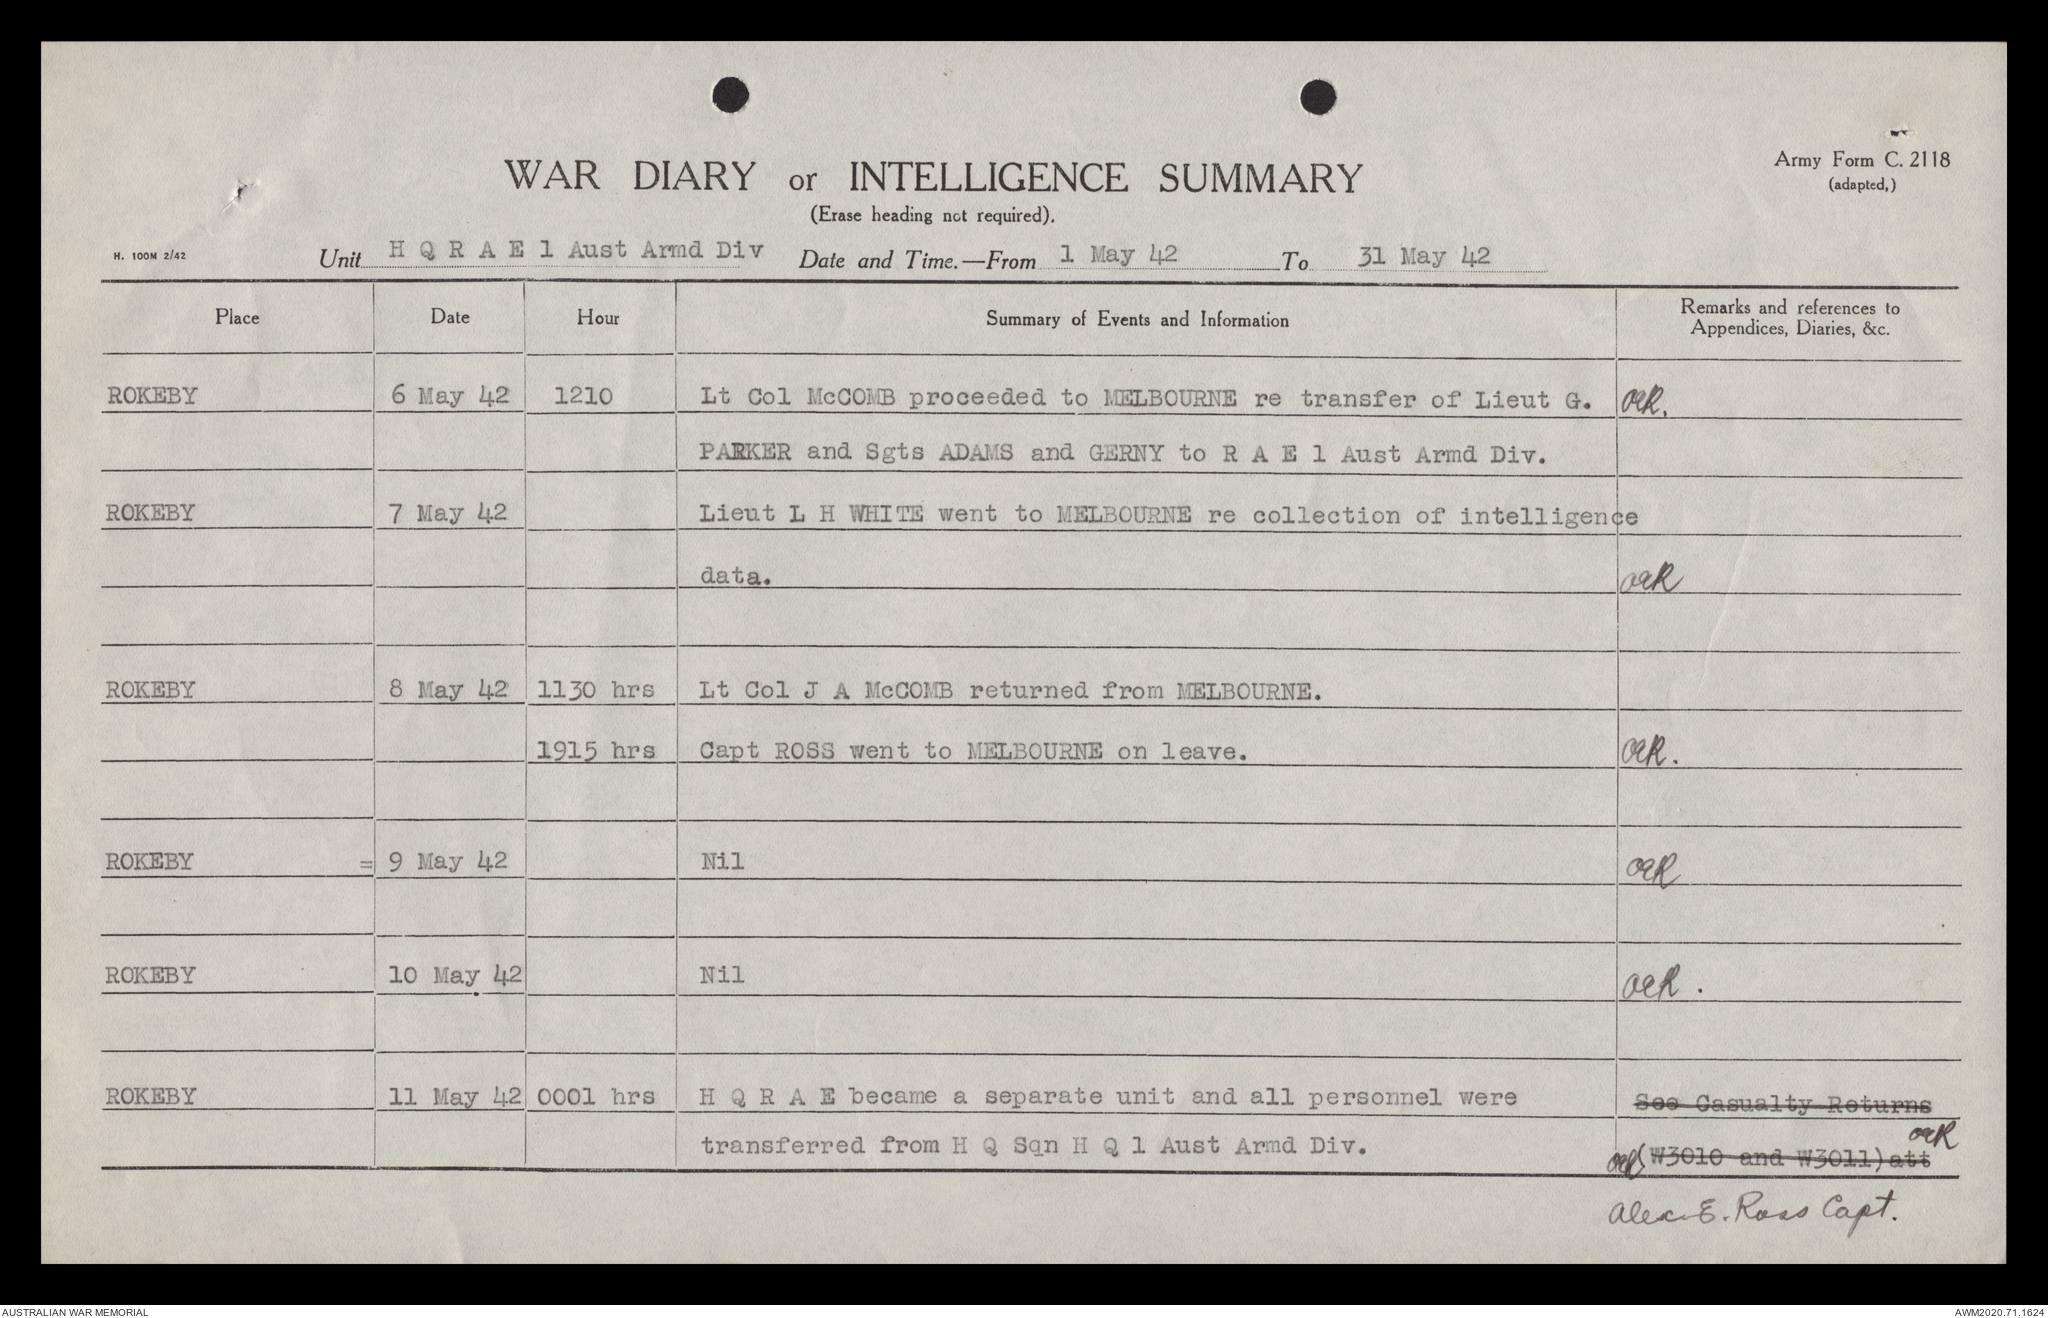 Army Form C. 2118
(adapted,)
WAR DIARY or INTELLIGENCE SUMMARY
(Erase heading not required).
H. 100M 2/42 Unit H Q R A E 1 Aust Armd Div Date and Time.—From 1 May 42 To 31 May 42
Place Date Hour Summary of Events and Information Remarks and references to
Appendices, Diaries, &c.
ROKEBY 6 May 42 1210 Lt Col McCOMB proceeded to MELBOURNE re transfer of Lieut G. aeR.
PARKER and Sgts ADAMS and GERNY to R A E 1 Aust Armd Div.
ROKEBY 7 May 42 Lieut L H WHITE went to MELBOURNE re collection of intelligence
data. aeR
ROKEBY 8 May 42 1130 hrs Lt Col J A McCOMB returned from MELBOURNE.
1915 hrs Capt ROSS went to MELBOURNE on leave. aeR.
ROKEBY = 9 May 42 Nil aeR
ROKEBY 10 May 42 Nil aeR.
ROKEBY 11 May 42 0001 hrs H Q R A E became a separate unit and all personnel were See Casualty Returns
transferred from H Q Sqn H Q 1 Aust Armd Div. aeR (W3010 and W3011) att aeR
Alex E. Ross Capt.
AUSTRALIAN WAR MEMORIAL AWM2020.71.1624